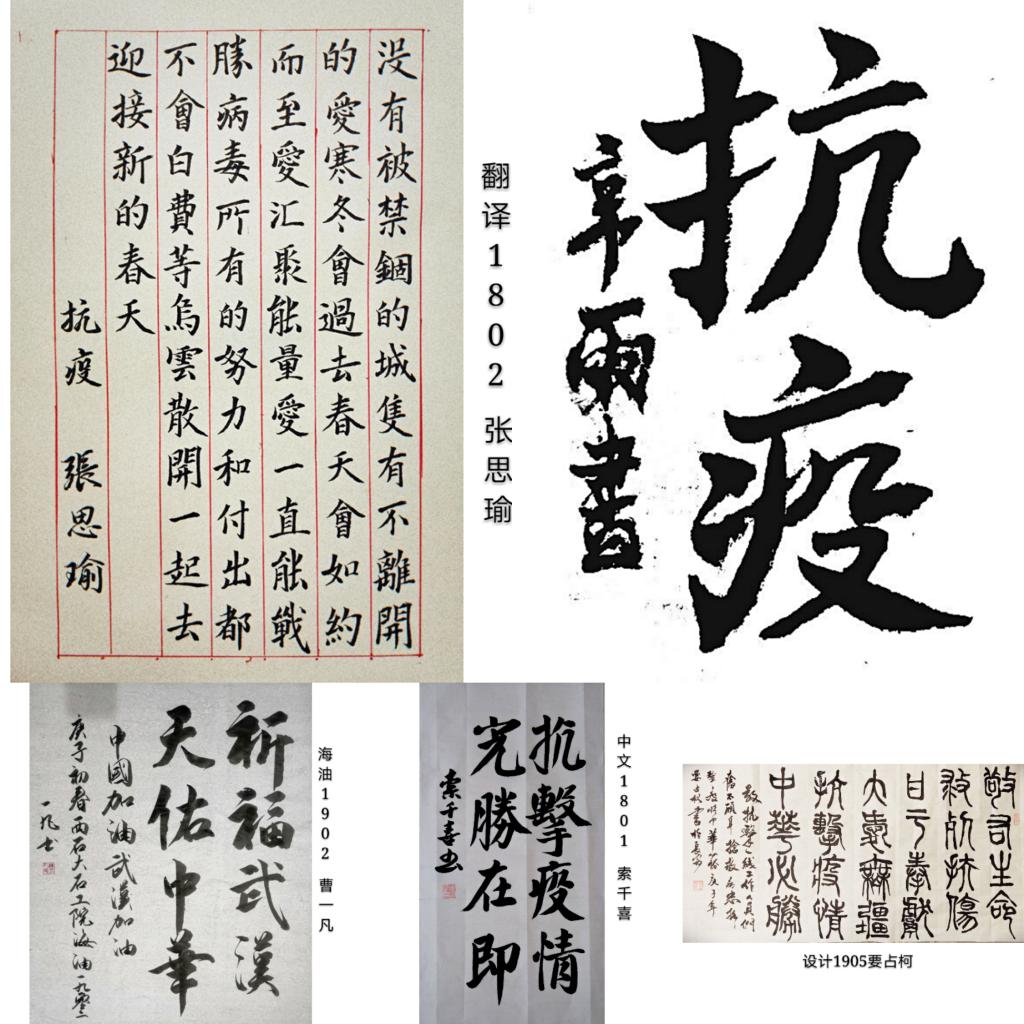 没有被禁錮的城隻有不離開
的愛寒冬會過去春天會如約
而至愛汇聚能量愛一直能戰
勝病毒所有的努力和付出都
不會白費等烏雲散開一起去
迎接新的春天
抗疫 張思瑜
翻译1802 张思瑜
抗疫
雨書
祈福武漢
天佑中華
中國加油武漢加油
庚子初春西石大石工院海油一九
一凡书
海油1902 曹一凡
抗擊疫情
完勝在即
索千喜书
中文1801 索千喜
生命
救死扶傷
甘于奉獻
大爱無疆
抗擊疫情
中華必勝
设计1905要占柯